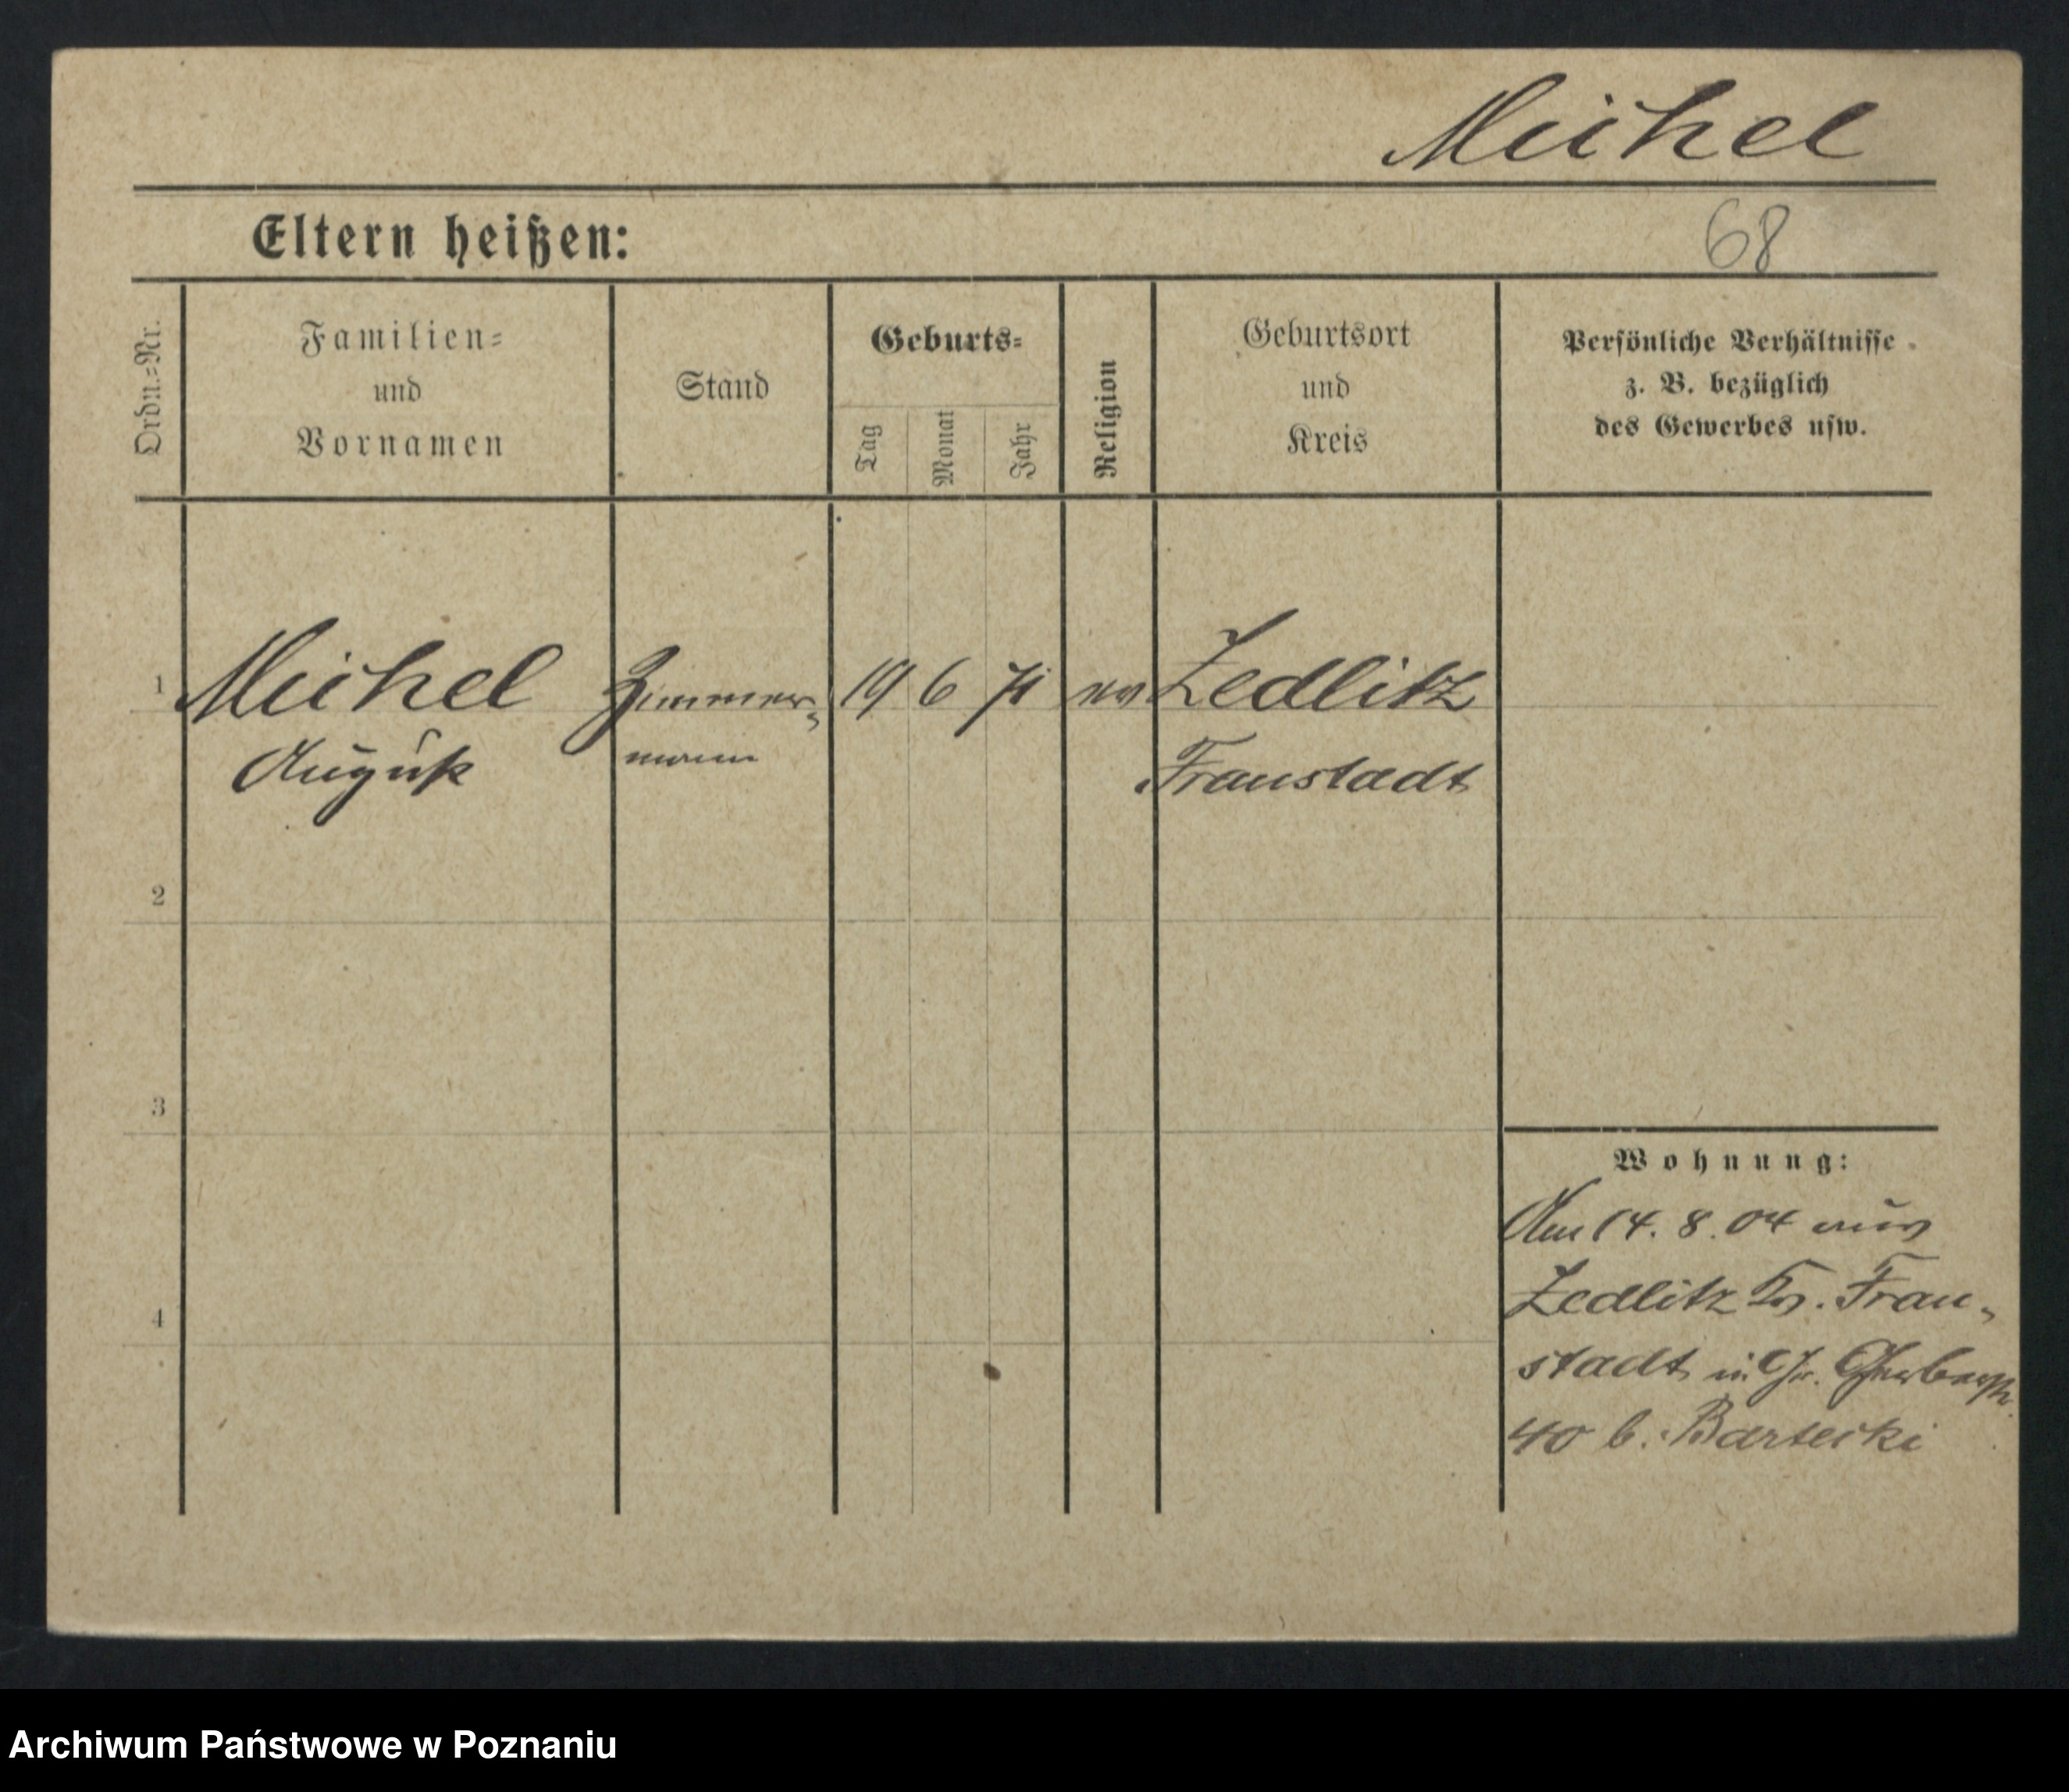 Michel
Eltern heißen:
68
Ordn.=Nr.
Familien=
und
Vornamen
Stand
Geburts=
Tag
Monat
Jahr
Religion
Geburtsort
und
Kreis
Persönliche Verhältnisse
z. B. bezüglich
des Gewerbes usw.
1 Michel Zimmer= 19 6 71 ev Zedlitz
August mann Fraustadt
2
3
4
Wohnung:
Am 14. 8. 04 aus
Zedlitz Kr. Frau=
stadt in Gr. Gerberstr.
40 b. Bartecki
Archiwum Państwowe w Poznaniu